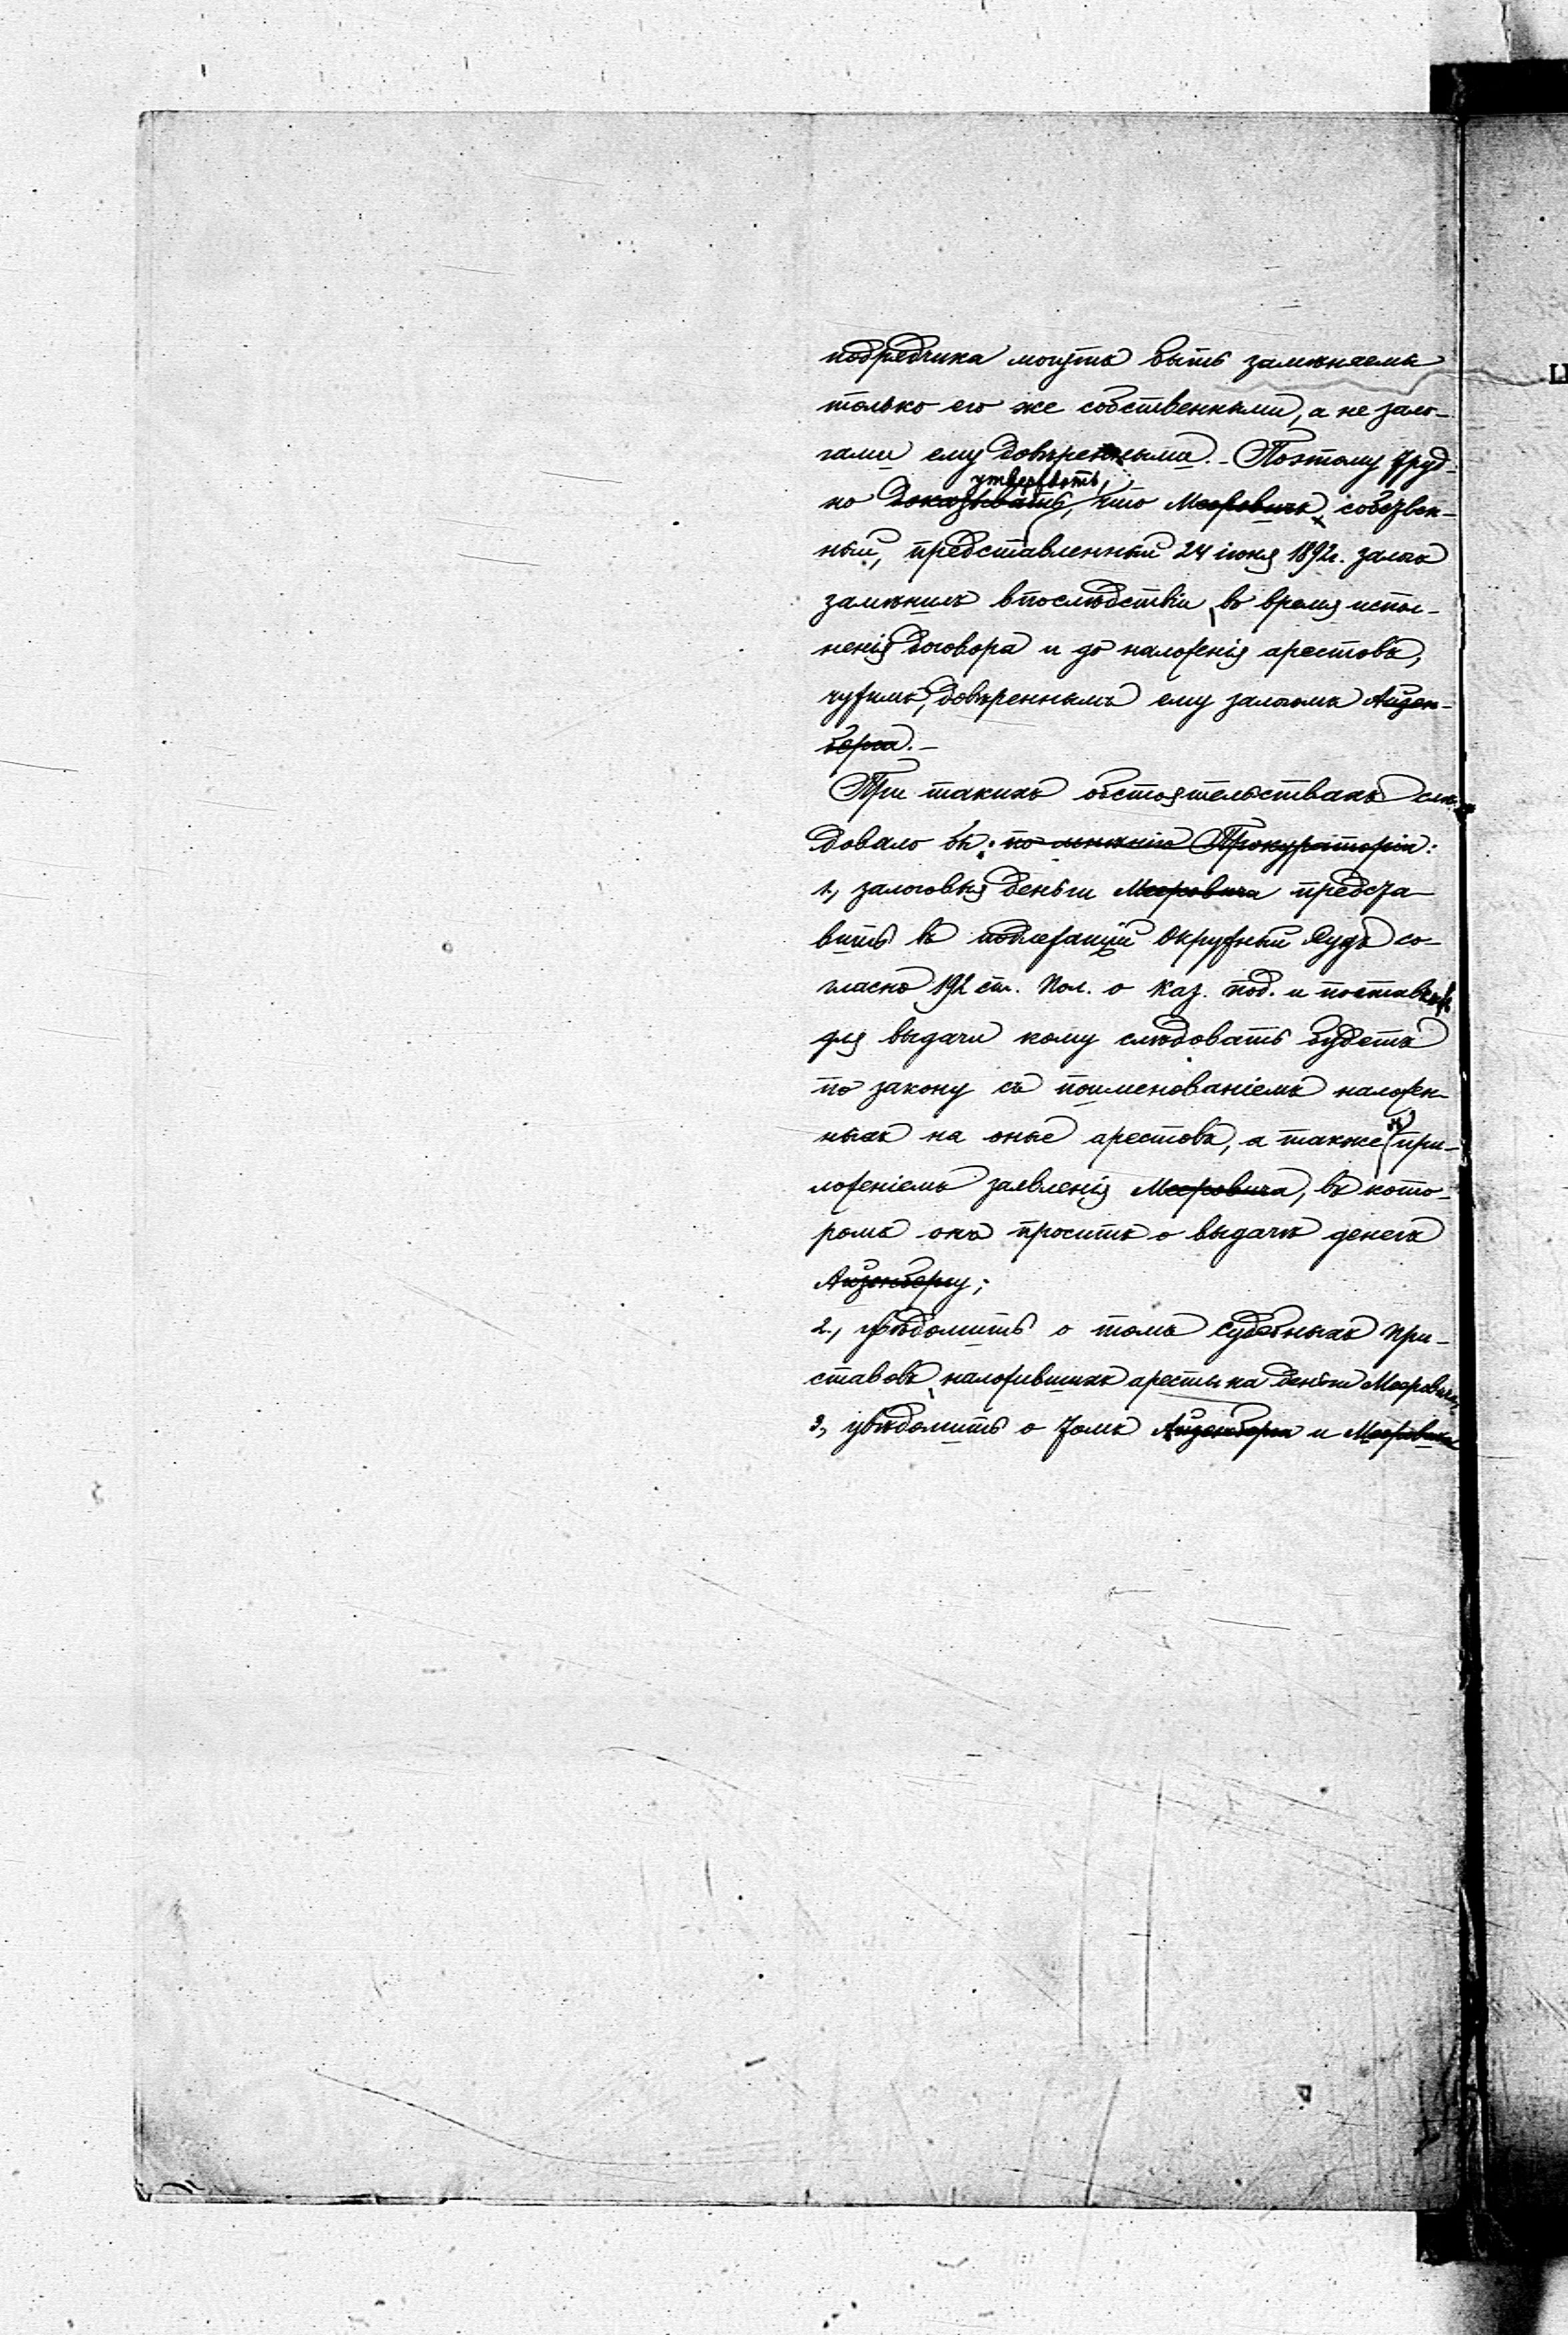 подрядчика могутъ быть замѣняемы
только его же собственными, а не зало-
гами ему довѣренными. - Поэтому труд-
утверждать,
но доказывать, что Мееровичъ собствен-
ный, представленный 24 іюня 1892г. залогъ
замѣнилъ впослѣдствіи, во время испол-
ненія договора и до наложенія арестовъ,
чужимъ, довѣреннымъ ему залогомъ Айзен-
берга. -
При такихъ обстоятельствахъ слѣ-
довало бы: по мнѣнію Прокураторіи:
1, залоговыя деньги Мееровича предста-
вить въ подлежащій Окружный Судъ со-
гласно 192 ст. Пол. о каз. под. и поставк.
для выдачи кому слѣдовать будетъ
по закону съ поименованіемъ наложен-
ныхъ на оные арестовъ, а также при-
ложеніемъ заявленія Мееровича, въ кото-
ромъ онъ проситъ о выдачѣ денегъ
Айзенбергу;
2, увѣдомить о томъ судебныхъ при-
ставовъ, наложившихъ аресты на деньги Мееровича,
3, увѣдомить о томъ Айзенберга и Мееровича